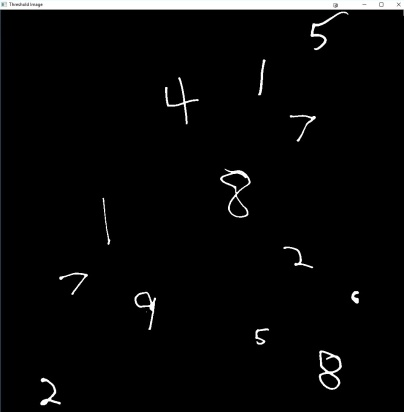 Threshold Image
5
1
4
7
8
1
2
7
6
9
5
8
2